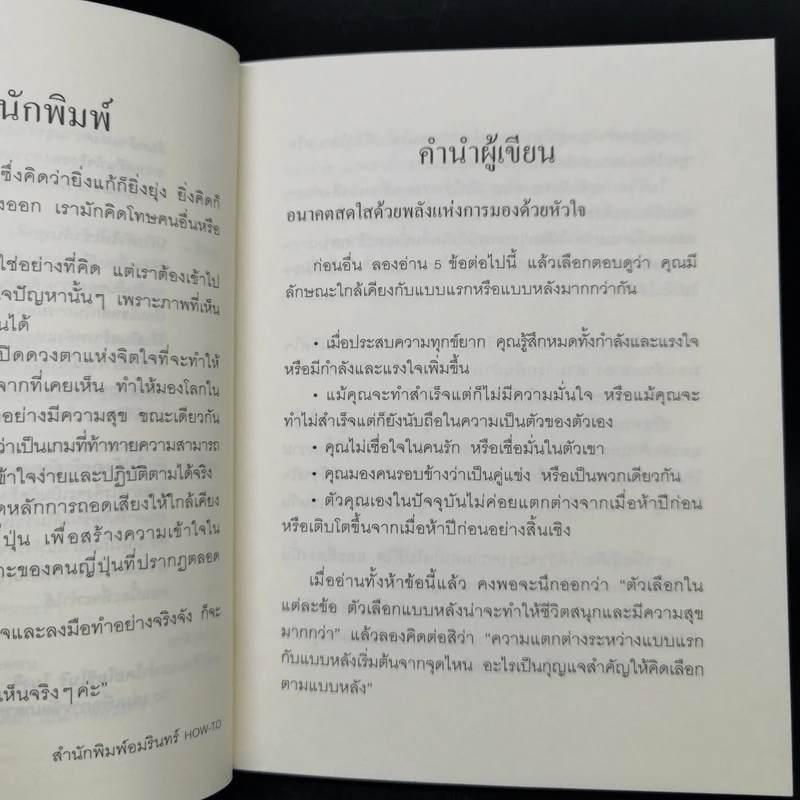 นักพิมพ์
ซึ่งคิดว่ายิ่งแก้ก็ยิ่งยุ่ง ยิ่งคิดก็
งออก เรามักคิดโทษคนอื่นหรือ
ใช่อย่างที่คิด แต่เราต้องเข้าไป
จปัญหานั้นๆ เพราะภาพที่เห็น
นได้
ปิดดวงตาแห่งจิตใจที่จะทำให้
จากที่เคยเห็น ทำให้มองโลกใน
อย่างมีความสุข ขณะเดียวกัน
ว่าเป็นเกมที่ท้าทายความสามารถ
ข้าใจง่ายและปฏิบัติตามได้จริง
ดหลักการถอดเสียงให้ใกล้เคียง
ปุ่น เพื่อสร้างความเข้าใจใน
าะของคนญี่ปุ่นที่ปรากฏตลอด
จและลงมือทำอย่างจริงจัง ก็จะ
เห็นจริงๆค่ะ”
สำนักพิมพ์อมรินทร์ HOW-TO
คำนำผู้เขียน
อนาคตสดใสด้วยพลังแห่งการมองด้วยหัวใจ
ก่อนอื่น ลองอ่าน 5 ข้อต่อไปนี้ แล้วเลือกตอบดูว่า คุณมี
ลักษณะใกล้เคียงกับแบบแรกหรือแบบหลังมากกว่ากัน
• เมื่อประสบความทุกข์ยาก คุณรู้สึกหมดทั้งกำลังและแรงใจ
หรือมีกำลังและแรงใจเพิ่มขึ้น
• แม้คุณจะทำสำเร็จแต่ก็ไม่มีความมั่นใจ หรือแม้คุณจะ
ทำไม่สำเร็จแต่ก็ยังนับถือในความเป็นตัวของตัวเอง
• คุณไม่เชื่อใจในคนรัก หรือเชื่อมั่นในตัวเขา
• คุณมองคนรอบข้างว่าเป็นคู่แข่ง หรือเป็นพวกเดียวกัน
• ตัวคุณเองในปัจจุบันไม่ค่อยแตกต่างจากเมื่อห้าปีก่อน
หรือเติบโตขึ้นจากเมื่อห้าปีก่อนอย่างสิ้นเชิง
เมื่ออ่านทั้งห้าข้อนี้แล้ว คงพอจะนึกออกว่า “ตัวเลือกใน
แต่ละข้อ ตัวเลือกแบบหลังน่าจะทำให้ชีวิตสนุกและมีความสุข
มากกว่า” แล้วลองคิดต่อสิว่า “ความแตกต่างระหว่างแบบแรก
กับแบบหลังเริ่มต้นจากจุดไหน อะไรเป็นกุญแจสำคัญให้คิดเลือก
ตามแบบหลัง”